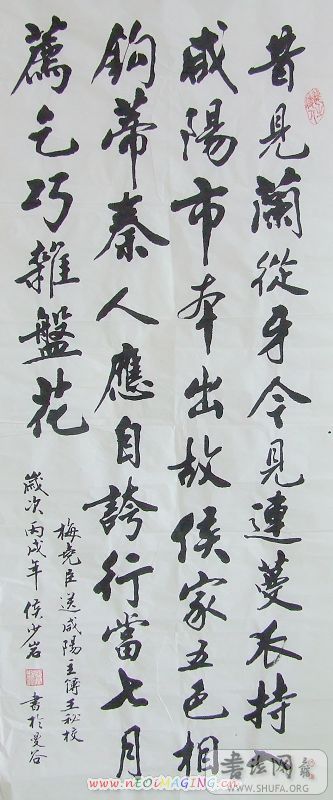 昔見蘭從牙今見連蔓衣持入
咸陽市本出故侯家五色相
鈎蒂秦人應自誇行當七月
薦乞巧雜盤花
梅堯臣送咸陽主傅王秘校
歲次丙戌年侯少岩
書於曼谷
書法网
WWW.SHUFA.ORG
www.nEOiMAGING.cn